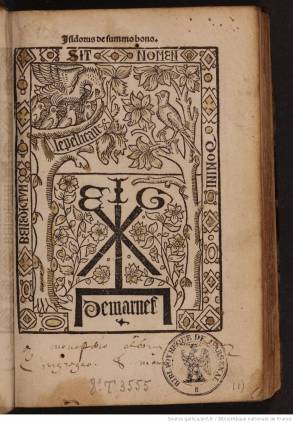 Isidorus de summo bono.
SIT NOMEN
DOMINI
BENEDICTUM
le pelican
E I G
Demarnef
8° T 3555
BIBLIOTHEQUE DE L'ARSENAL
(1)
Source gallica.bnf.fr / Bibliothèque nationale de France